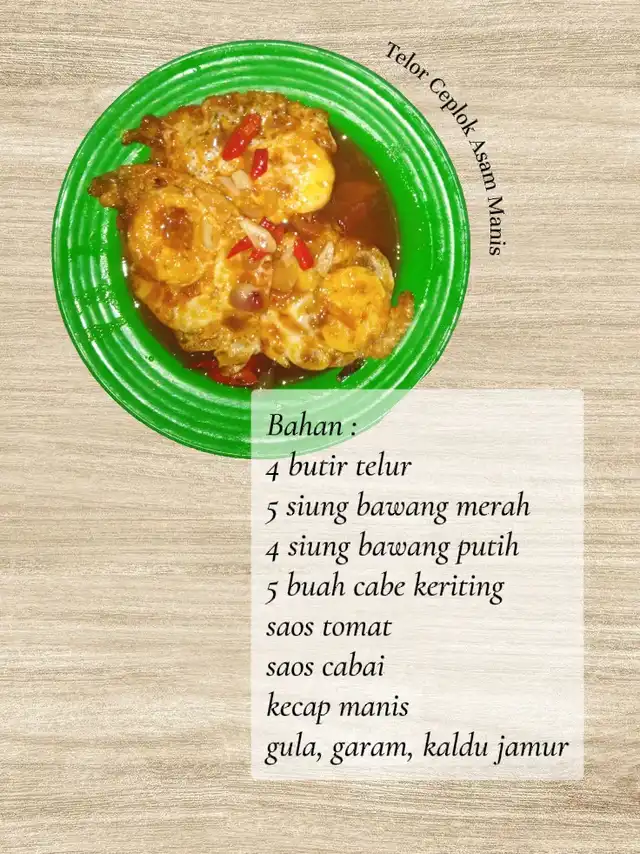 Telor Ceplok Asam Manis
Bahan :
4 butir telur
5 siung bawang merah
4 siung bawang putih
5 buah cabe keriting
saos tomat
saos cabai
kecap manis
gula, garam, kaldu jamur